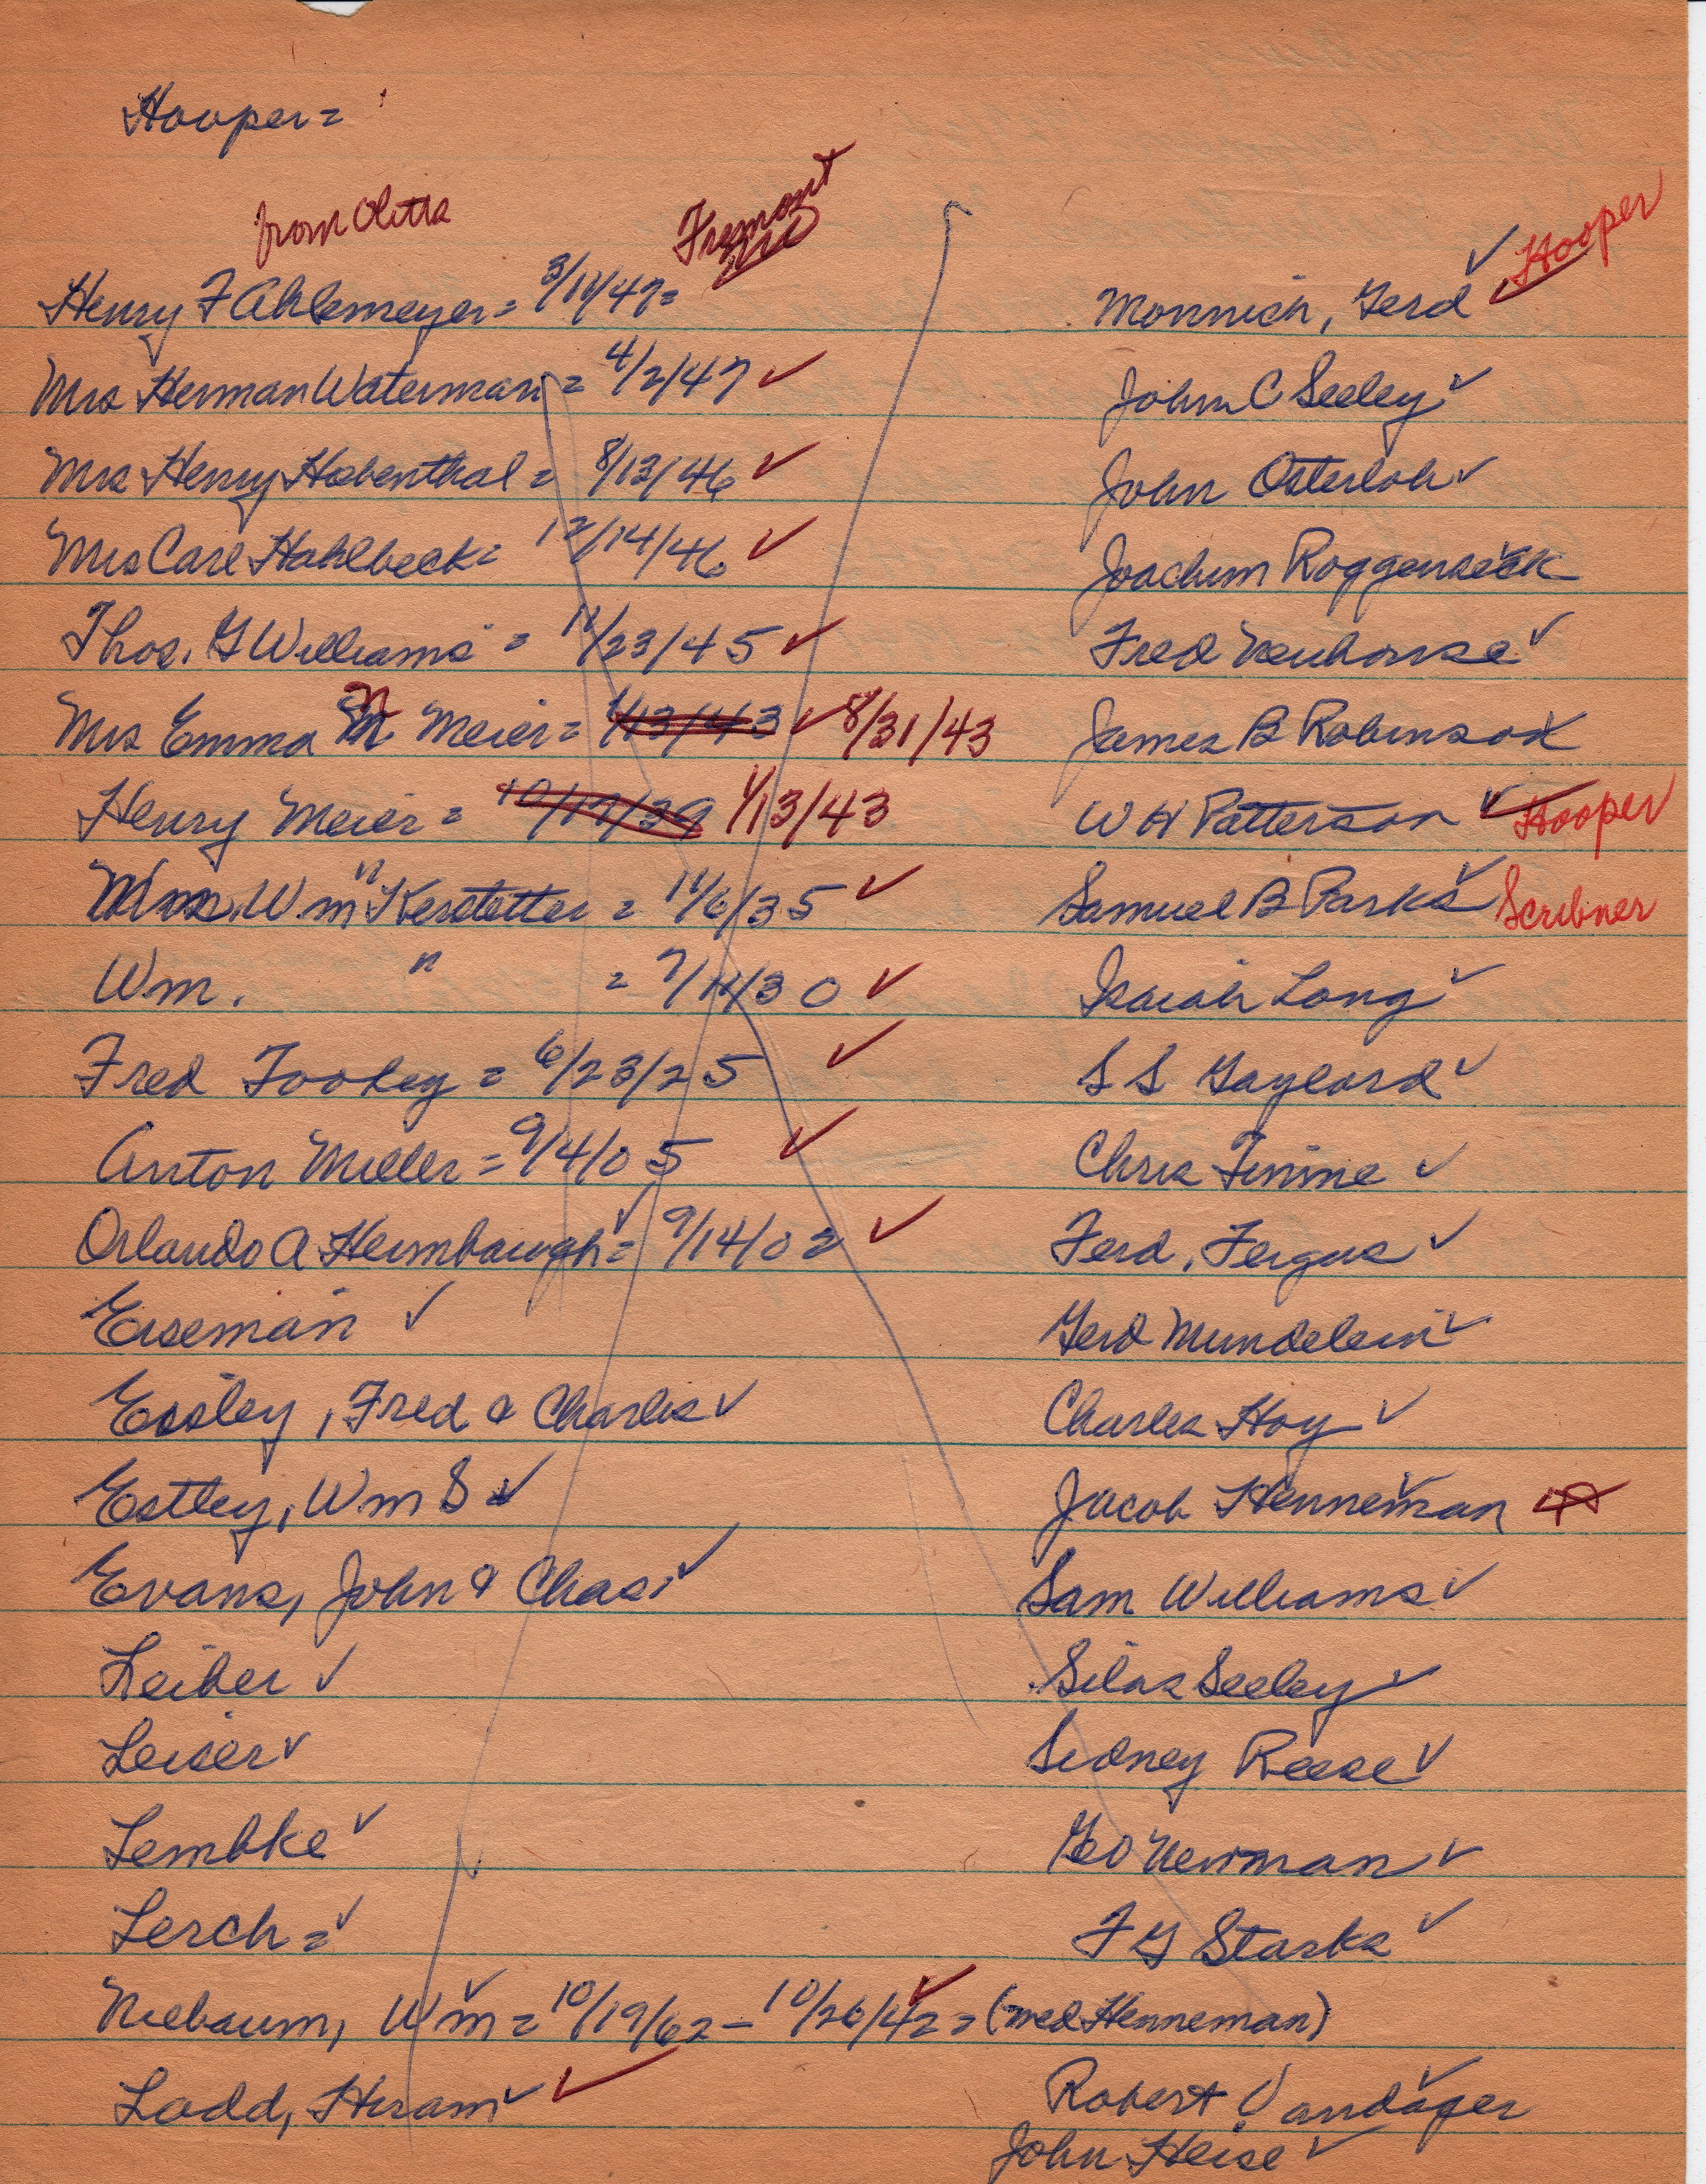 Hooper =
from Obits Fremont
Henry F Ahlemeyer = 3/11/47 =
Mrs Herman Waterman = 4/2/47 ✓
Mrs Henry Hobenthal = 8/13/46 ✓
Mrs Carl Hahlbeck = 12/14/46 ✓
Thos. G Williams = 11/23/45 ✓
Mrs Emma M Meier = 1/13/43 ✓ 8/31/43
Henry Meier = 10/17/39 1/13/43
Mrs. Wm Kerstetter = 11/6/35 ✓
Wm. " = 7/11/30 ✓
Fred Tookey = 6/23/25 ✓
Anton Miller = 9/4/05 ✓
Orlando A Heimbaugh ✓ = 9/14/02 ✓
Eiseman ✓
Essley, Fred & Charles ✓
Estley, Wm S ✓
Evans, John & Chas. ✓
Leiber ✓
Leiser ✓
Lembke ✓
Lerch = ✓
Niebaum, Wm ✓ = 10/19/62 - 10/26/42 ✓ = (med Henneman)
Ladd, Hiram ✓ ✓
Monnich, Gerd ✓ Hooper
John C Seeley ✓
John Osterloh ✓
Joachim Roggensack
Fred Neuhouse ✓
James B Robinson
W H Patterson ✓ Hooper
Samuel B Parks ✓ Scribner
Isaiah Long ✓
S S Gaylord ✓
Chris ✓
Ferd. Fergus ✓
Gerd Mundelein ✓
Charles Hoy ✓
Jacob Henneman ✓
Sam Williams ✓
Silas Seeley ✓
Sidney Reese ✓
Geo Newman ✓
F G Starks ✓
Robert Vandager ✓
John Heise ✓